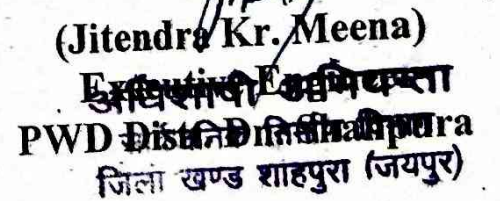 (Jitendra Kr. Meena)
Executive Engineer
अधिशाषी अभियन्ता
PWD Distt. Dn. Shahpura
जिला खण्ड शाहपुरा (जयपुर)